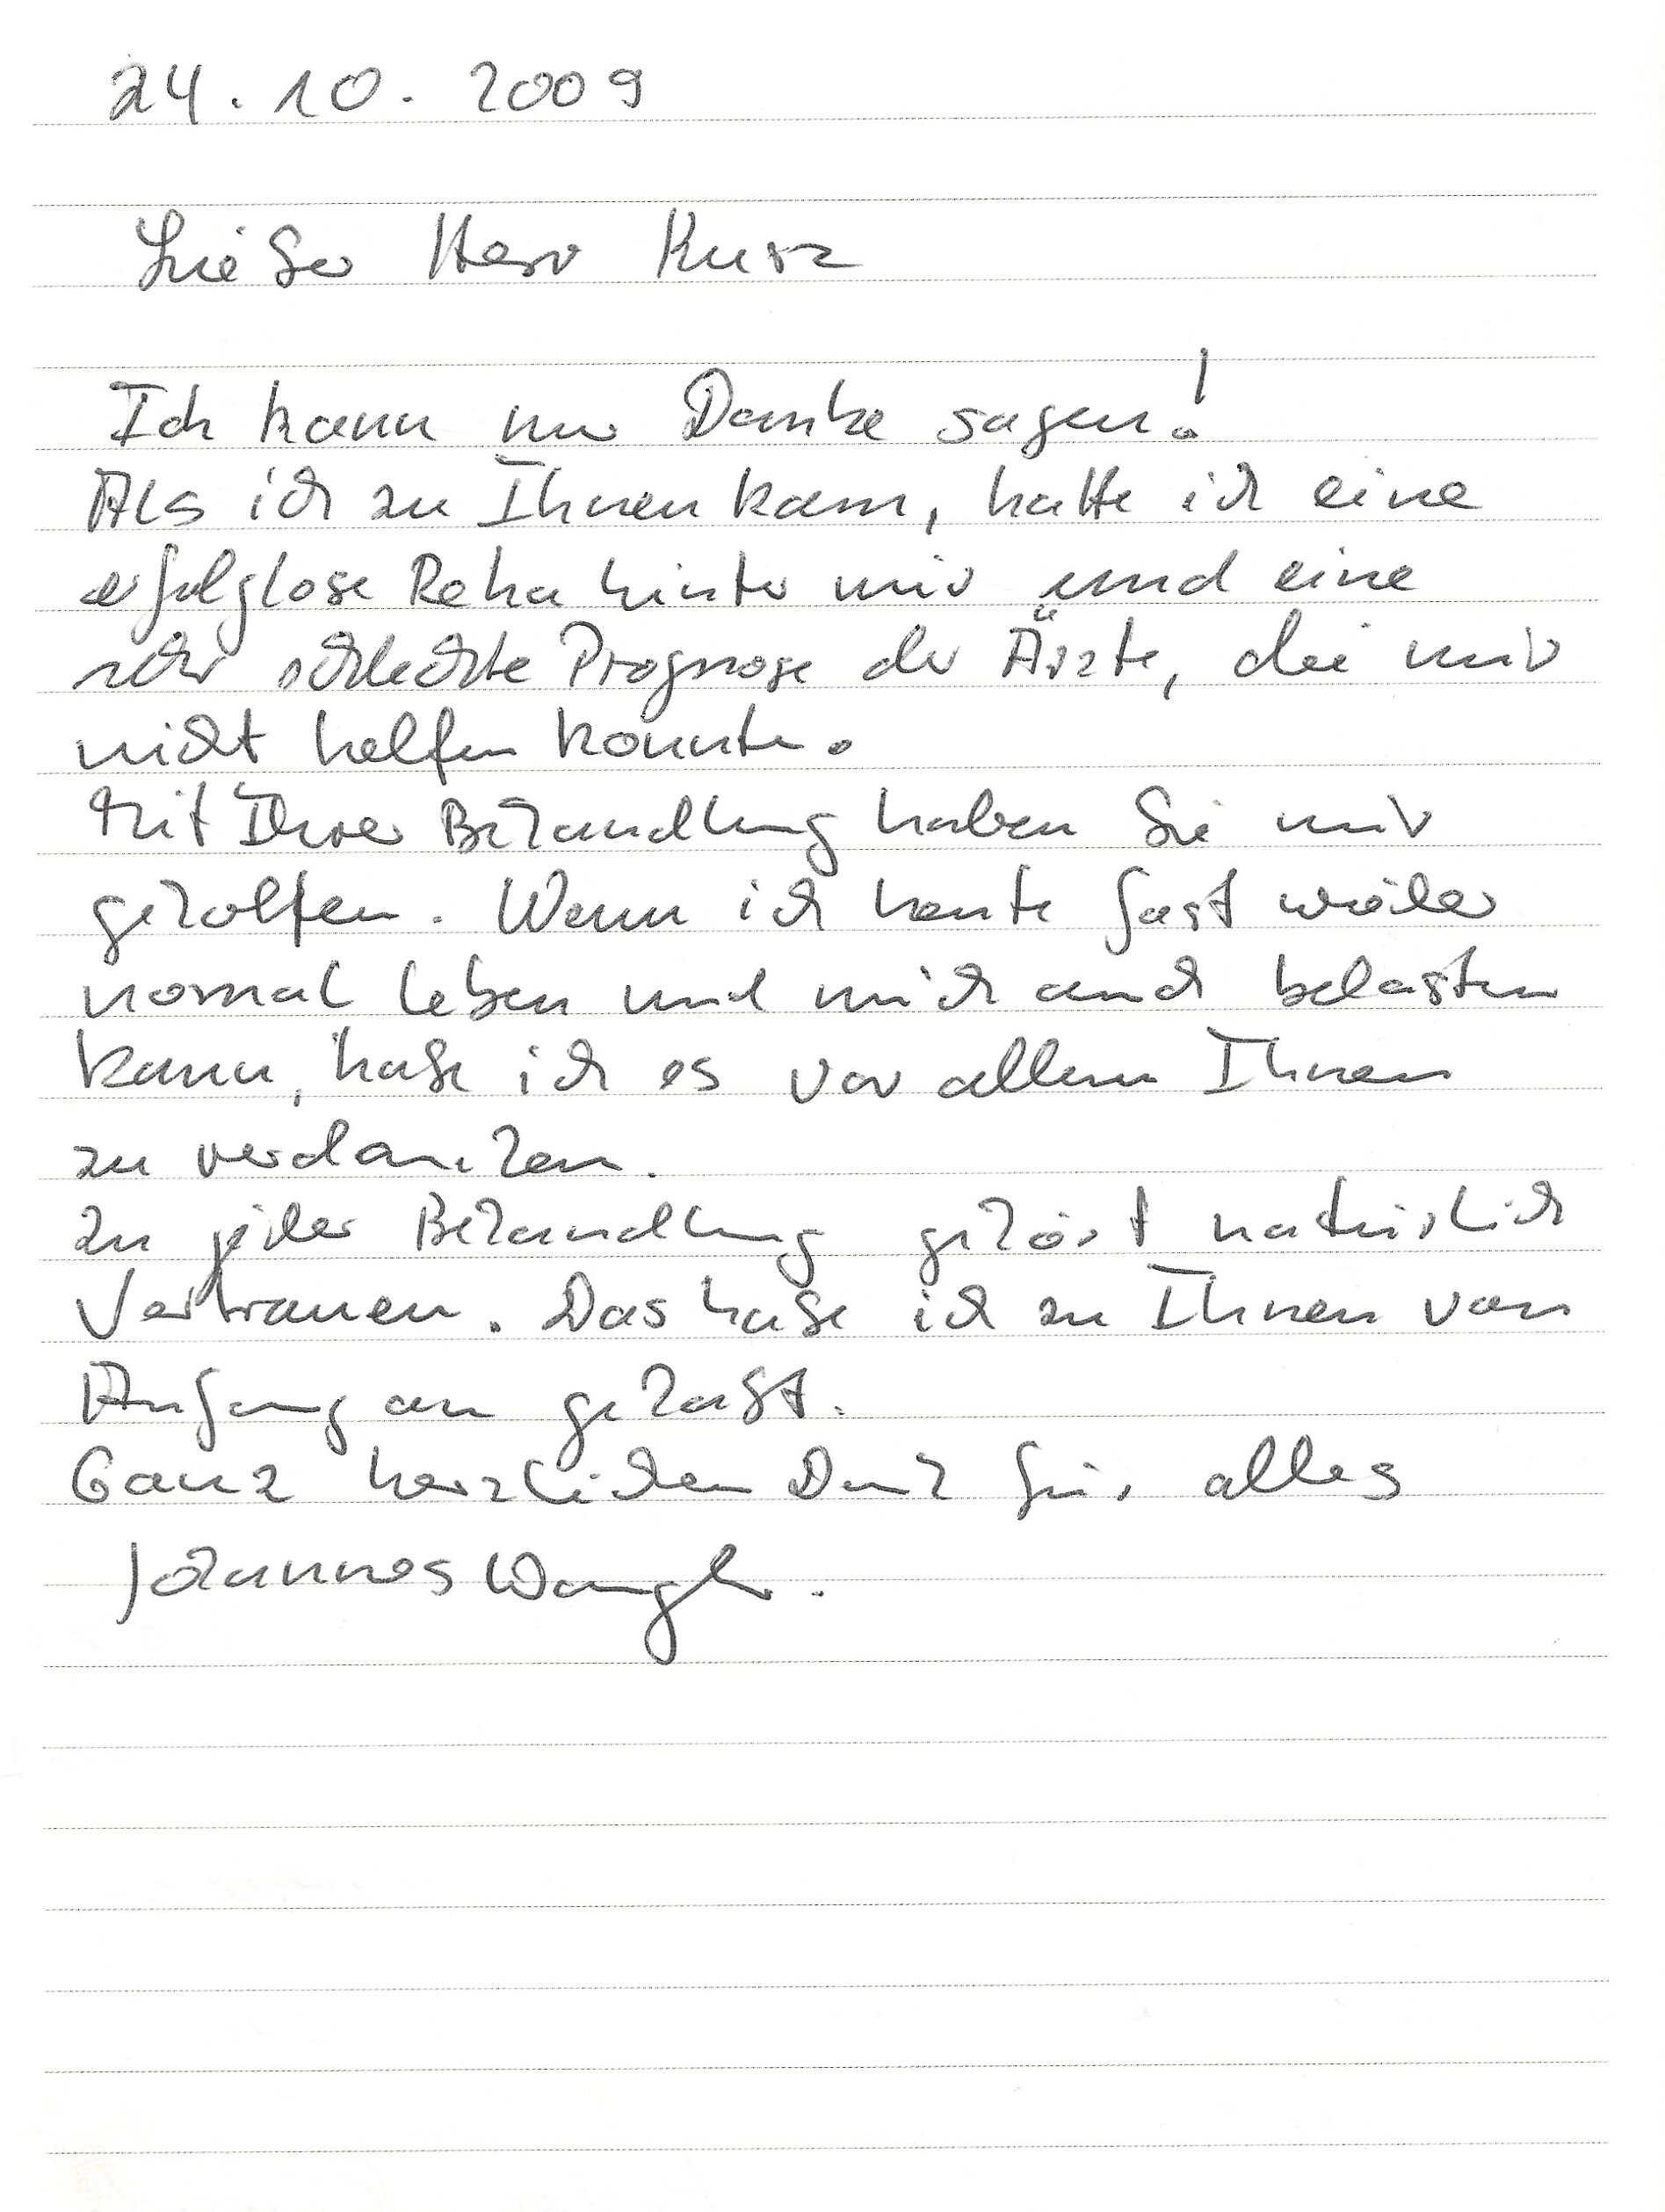 24.10.2009
Lieber Herr Kurz
Ich kann nur Danke sagen!
Als ich zu Ihnen kam, hatte ich eine
erfolglose Reha hinter mir und eine
sehr schlechte Prognose der Ärzte, die mir
nicht helfen konnten.
Mit Ihrer Behandlung haben Sie mir
geholfen. Wenn ich heute fast wieder
normal leben und mich auch belasten
kann, habe ich es vor allem Ihnen
zu verdanken.
Zu jeder Behandlung gehört natürlich
Vertrauen. Das habe ich zu Ihnen von
Anfang an gehabt.
Ganz herzlichen Dank für alles
Johannes